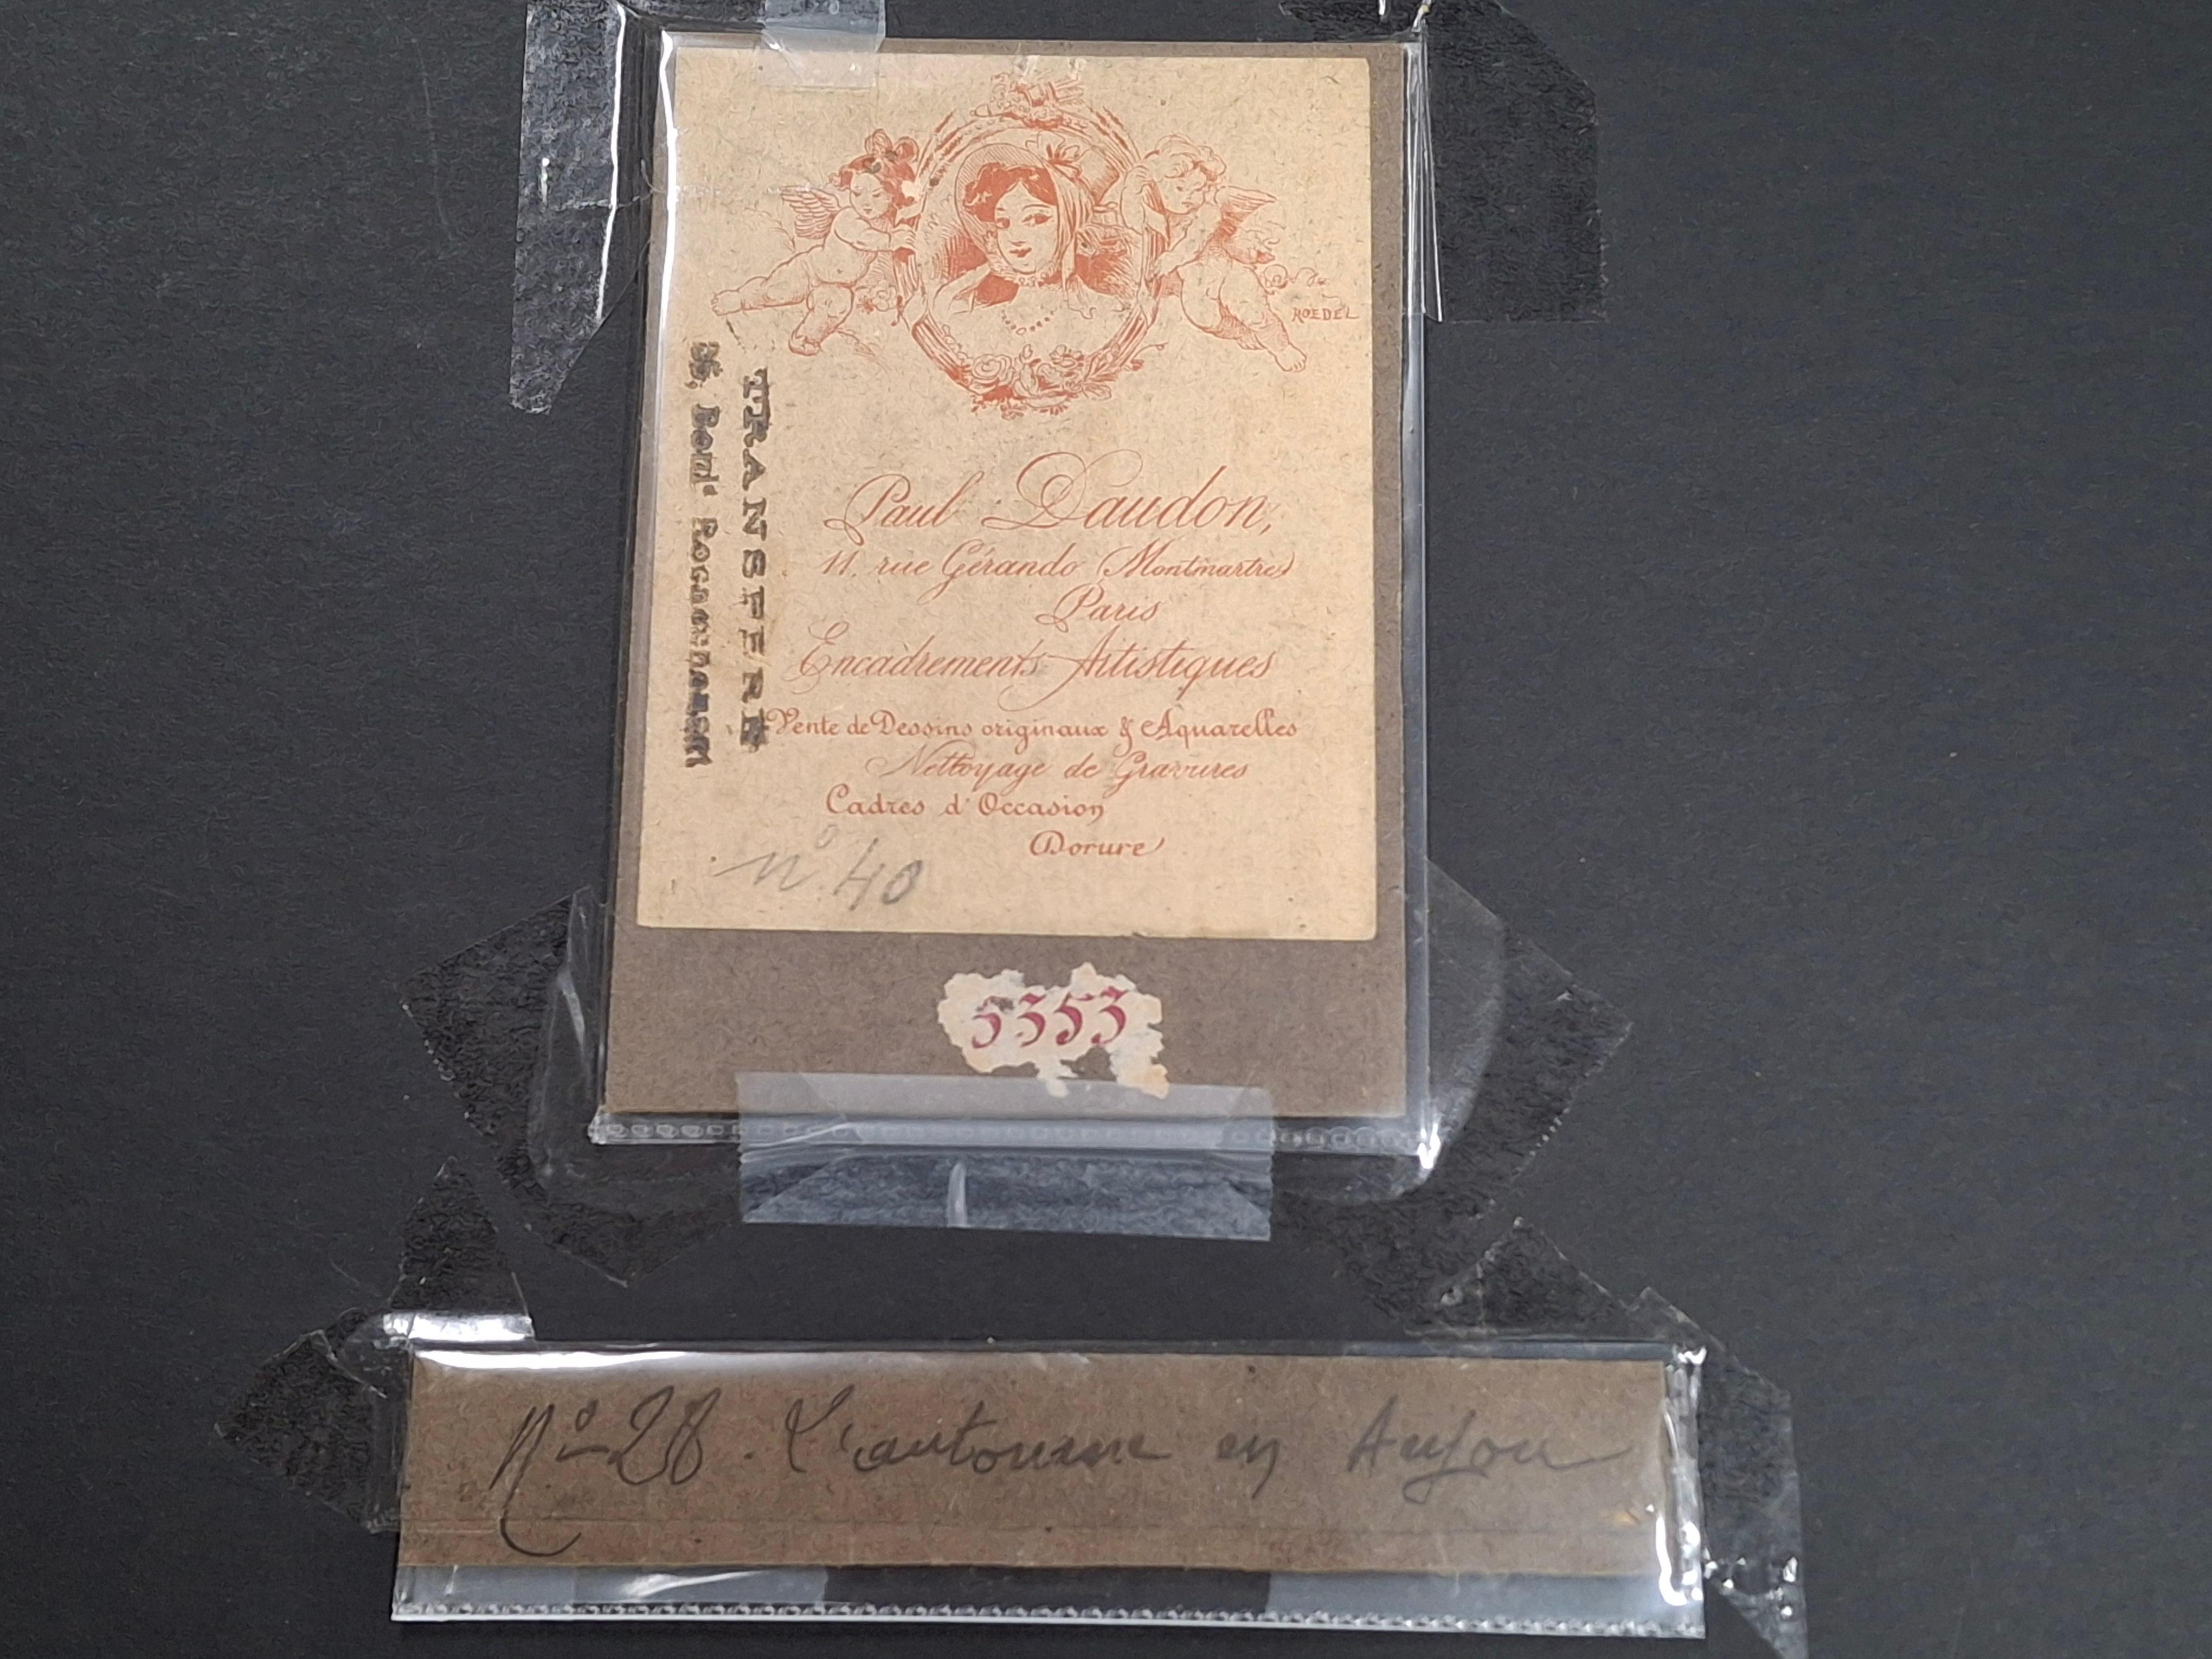 ROEDEL
TRANSFERE
36, Boul^d Rochechouart
Paul Daudon,
11, rue Gérando (Montmartre)
Paris
Encadrements Artistiques
Vente de Dessins originaux & Aquarelles
Nettoyage de Gravures
Cadres d'Occasion
Dorure
n° 40
5353
N° 28. L'automne en Anjou